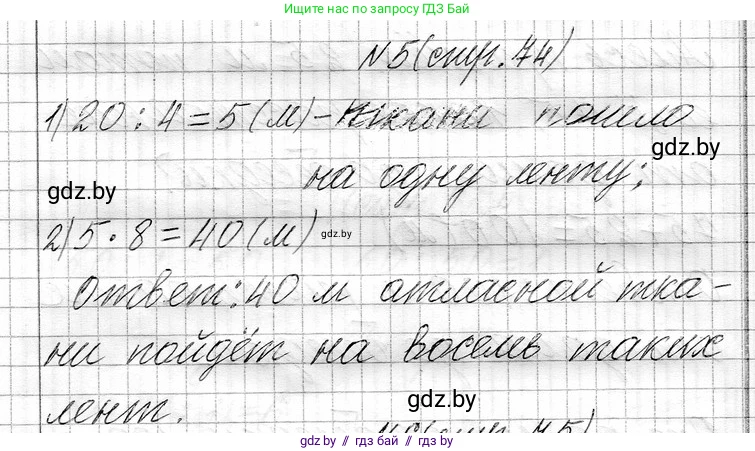 Ищите нас по запросу ГДЗ Бай
N 5 (стр. 74)
1) 20 : 4 = 5 (м) - ткани пошло
gdz.by
на одну ленту;
gdz.by
2) 5 · 8 = 40 (м)
gdz.by
Ответ: 40 м атласной тка-
ни пойдёт на восемь таких
gdz.by
лент.
gdz.by // гдз бай // gdz.by